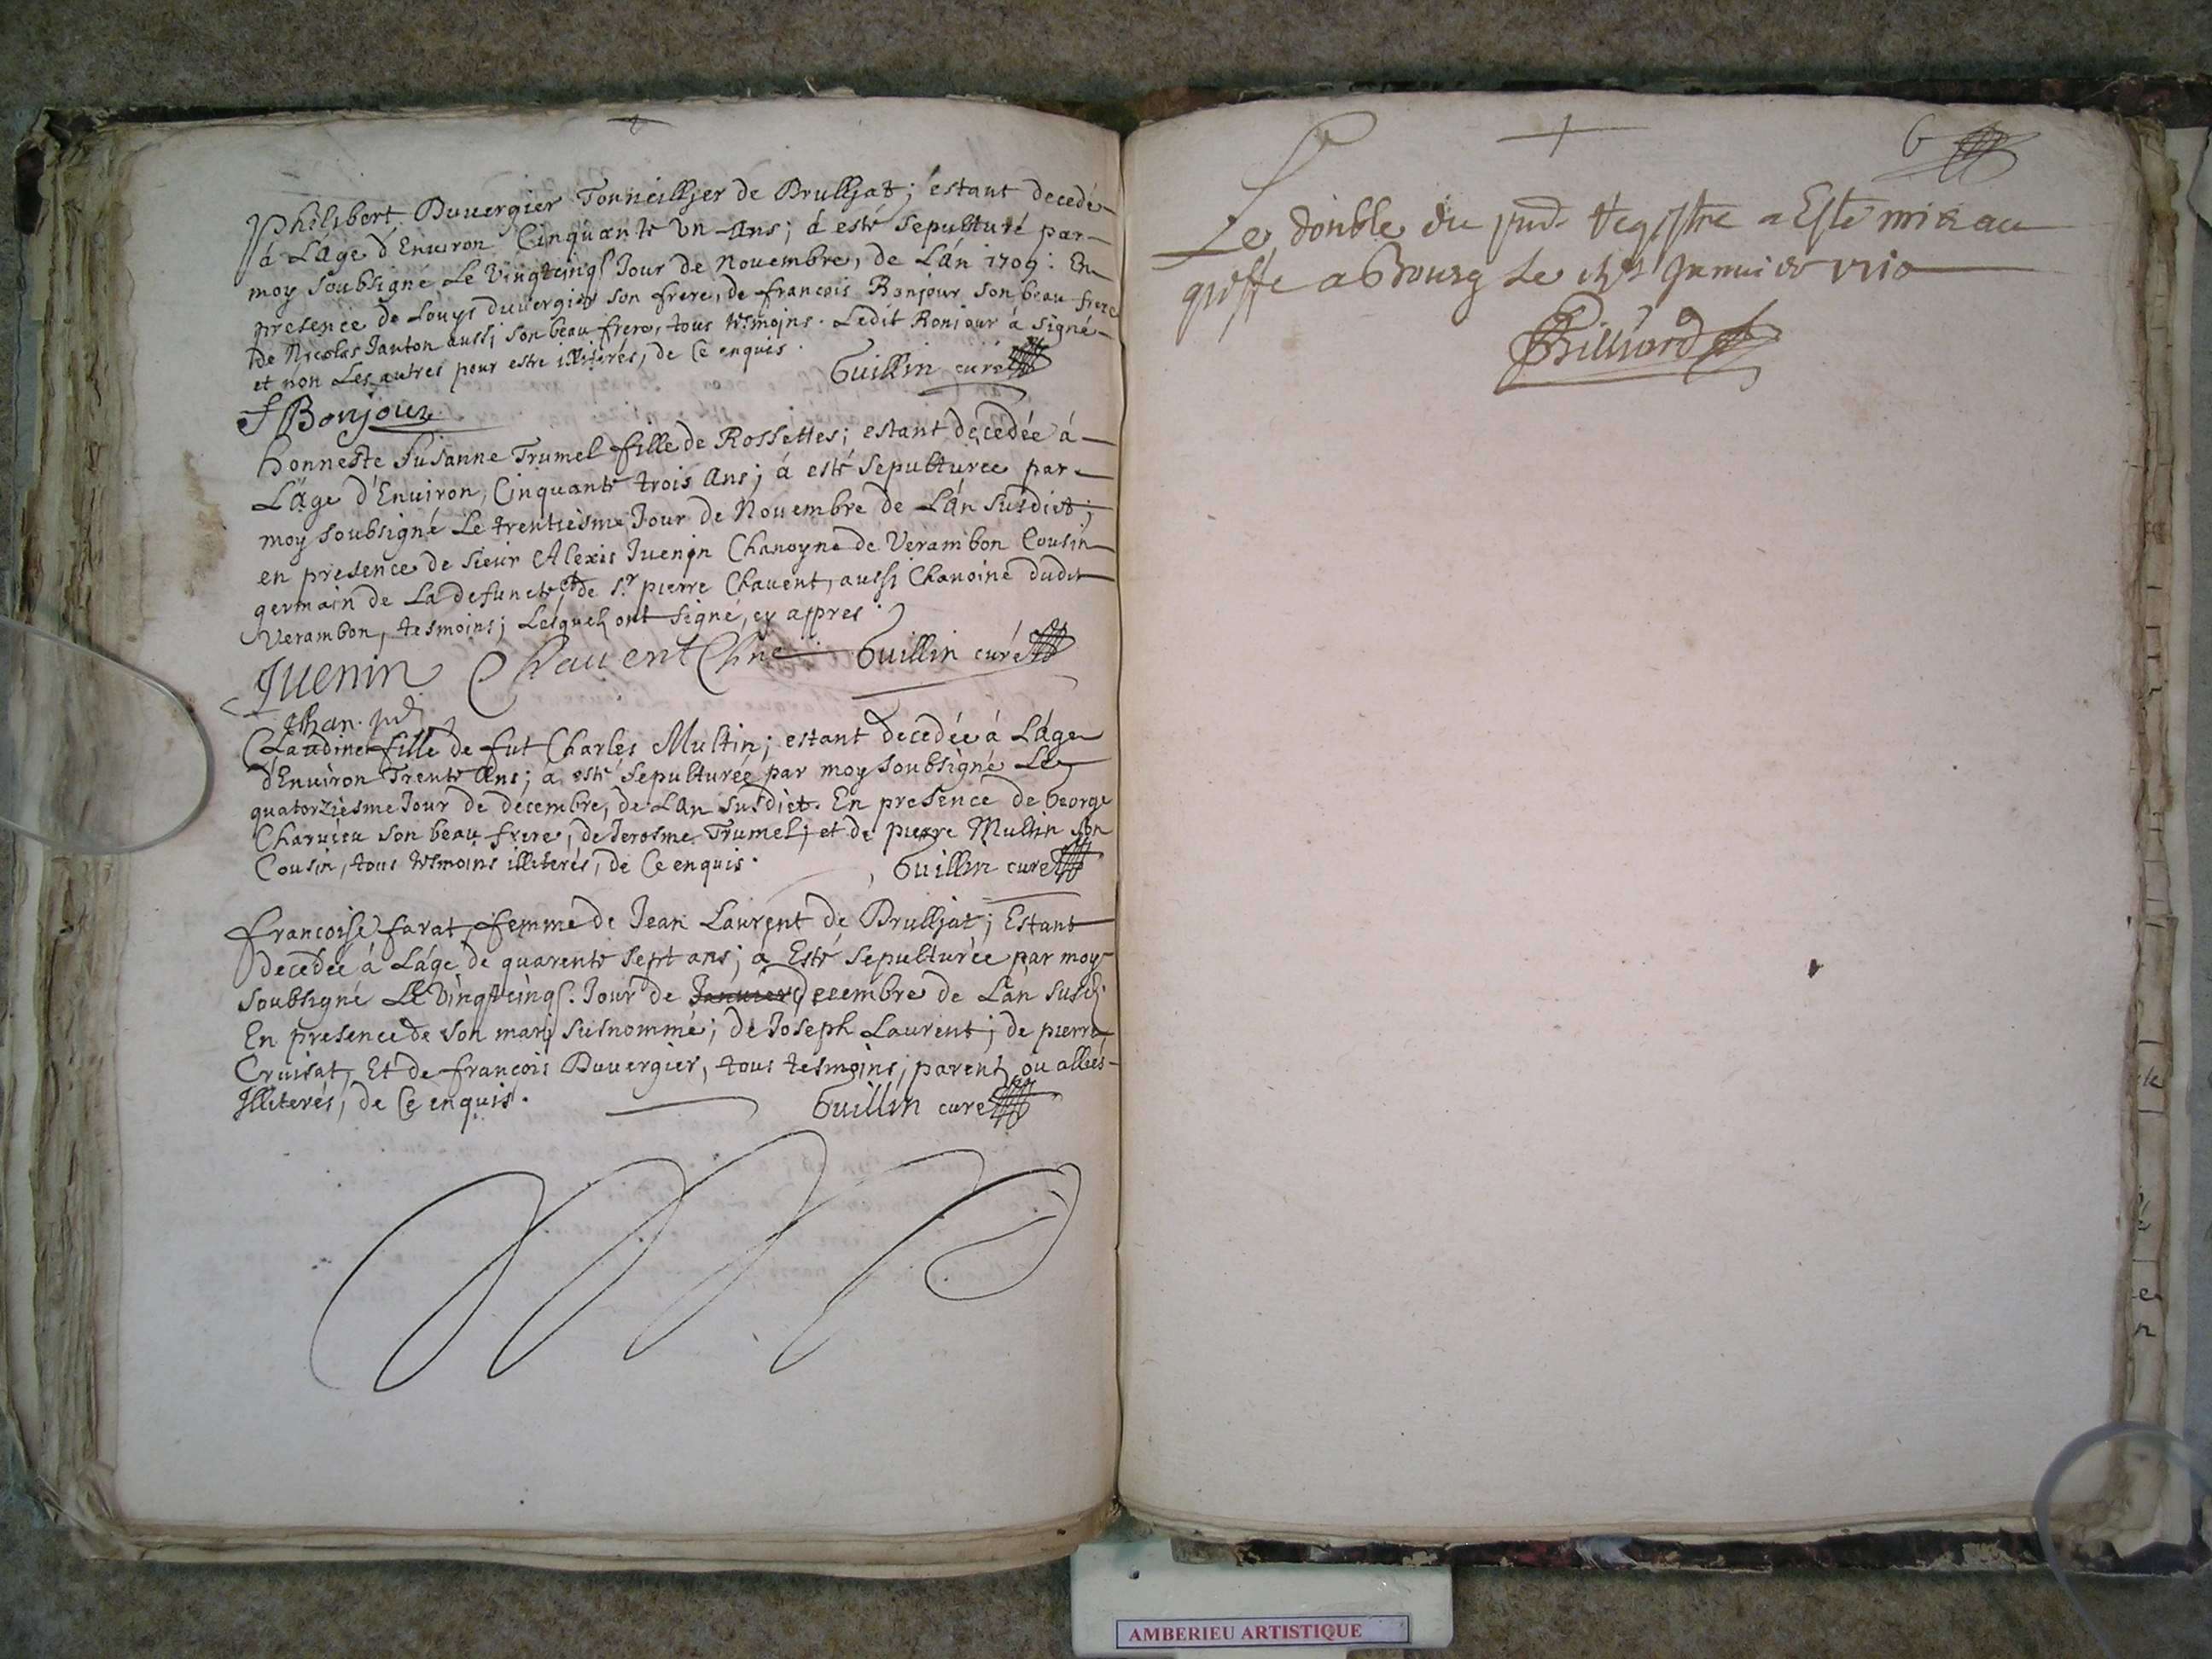 Philibert Duuergier Tonneillier de Brulliat; estant decedé
à Lage d'Enuiron Cinquante Un Ans; à esté Sepulturé par
moy soubsigné, Le Vingtcinq.e Jour de Nouembre, de Lán 1709: En
presence de Louys duuergier son frere, de francois Bonjour son beau frere
de Nicolas Janton aussi son beau frere, tous tesmoins. Ledit Boniour à signé
et non Les autres pour estre illiterés, de Ce enquis.
Guillin curé
f Bonjour
honneste Susanne Trumel fille de Rossettes; estant décedée á
Láge d'Enuiron, Cinquante trois Ans; á esté sepulturée par
moy soubsigné Le trentiésme Jour de Nouembre de Lán Susdict;
en presence de sieur Alexis Juenin Chanoyne de Verambon Cousin
germain de La defuncte, et de S.r pierre Chauent, aussi Chanoine dudit
Verambon, tesmoins; Lesquels ont signé, cy appres.
Juenin Chauent Chne Guillin curé
Chan.
Claudine fille de fut Charles Multin; estant decedée á Láge
d'Enuiron Trente Ans; a esté Sepulturée par moy soubsigné Le
quatorziésme Jour de decembre, de Lan susdict. En presence de George
Charuieu son beau frere, de Jerosme Trumel; et de pierre Multin son
Cousin, tous tesmoins illiterés, de Ce enquis.
Guillin curé
francoise farat, femme de Jean Laurent de Brulliat; Estant
decedée á Láge de quarente sept ans; a Esté Sepulturée par moy
soubsigné Le Vingtcinq.e Jour de Januier decembre de Lan susd.
En presence de son mary susnommé; de Joseph Laurent; de pierre
Cruisat, Et de francois Duuergier, tous tesmoins, parents ou alliés
Illiterés, de Ce enquis.
Guillin curé
6
Le double du pnt Registre a Esté mis au
greffe a Bourg Le Januier 1710
Billiord
AMBERIEU ARTISTIQUE